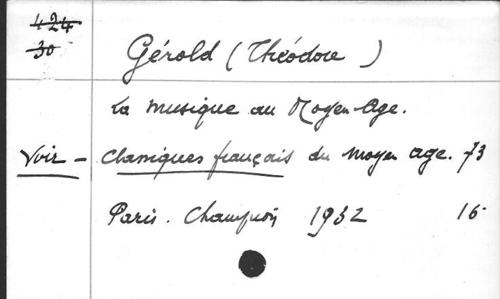 424
30
Gérold (Théodore )
La musique au Moyen-Age.
Voir - Classiques français du moyen age. 73
Paris. Champion 1932 16